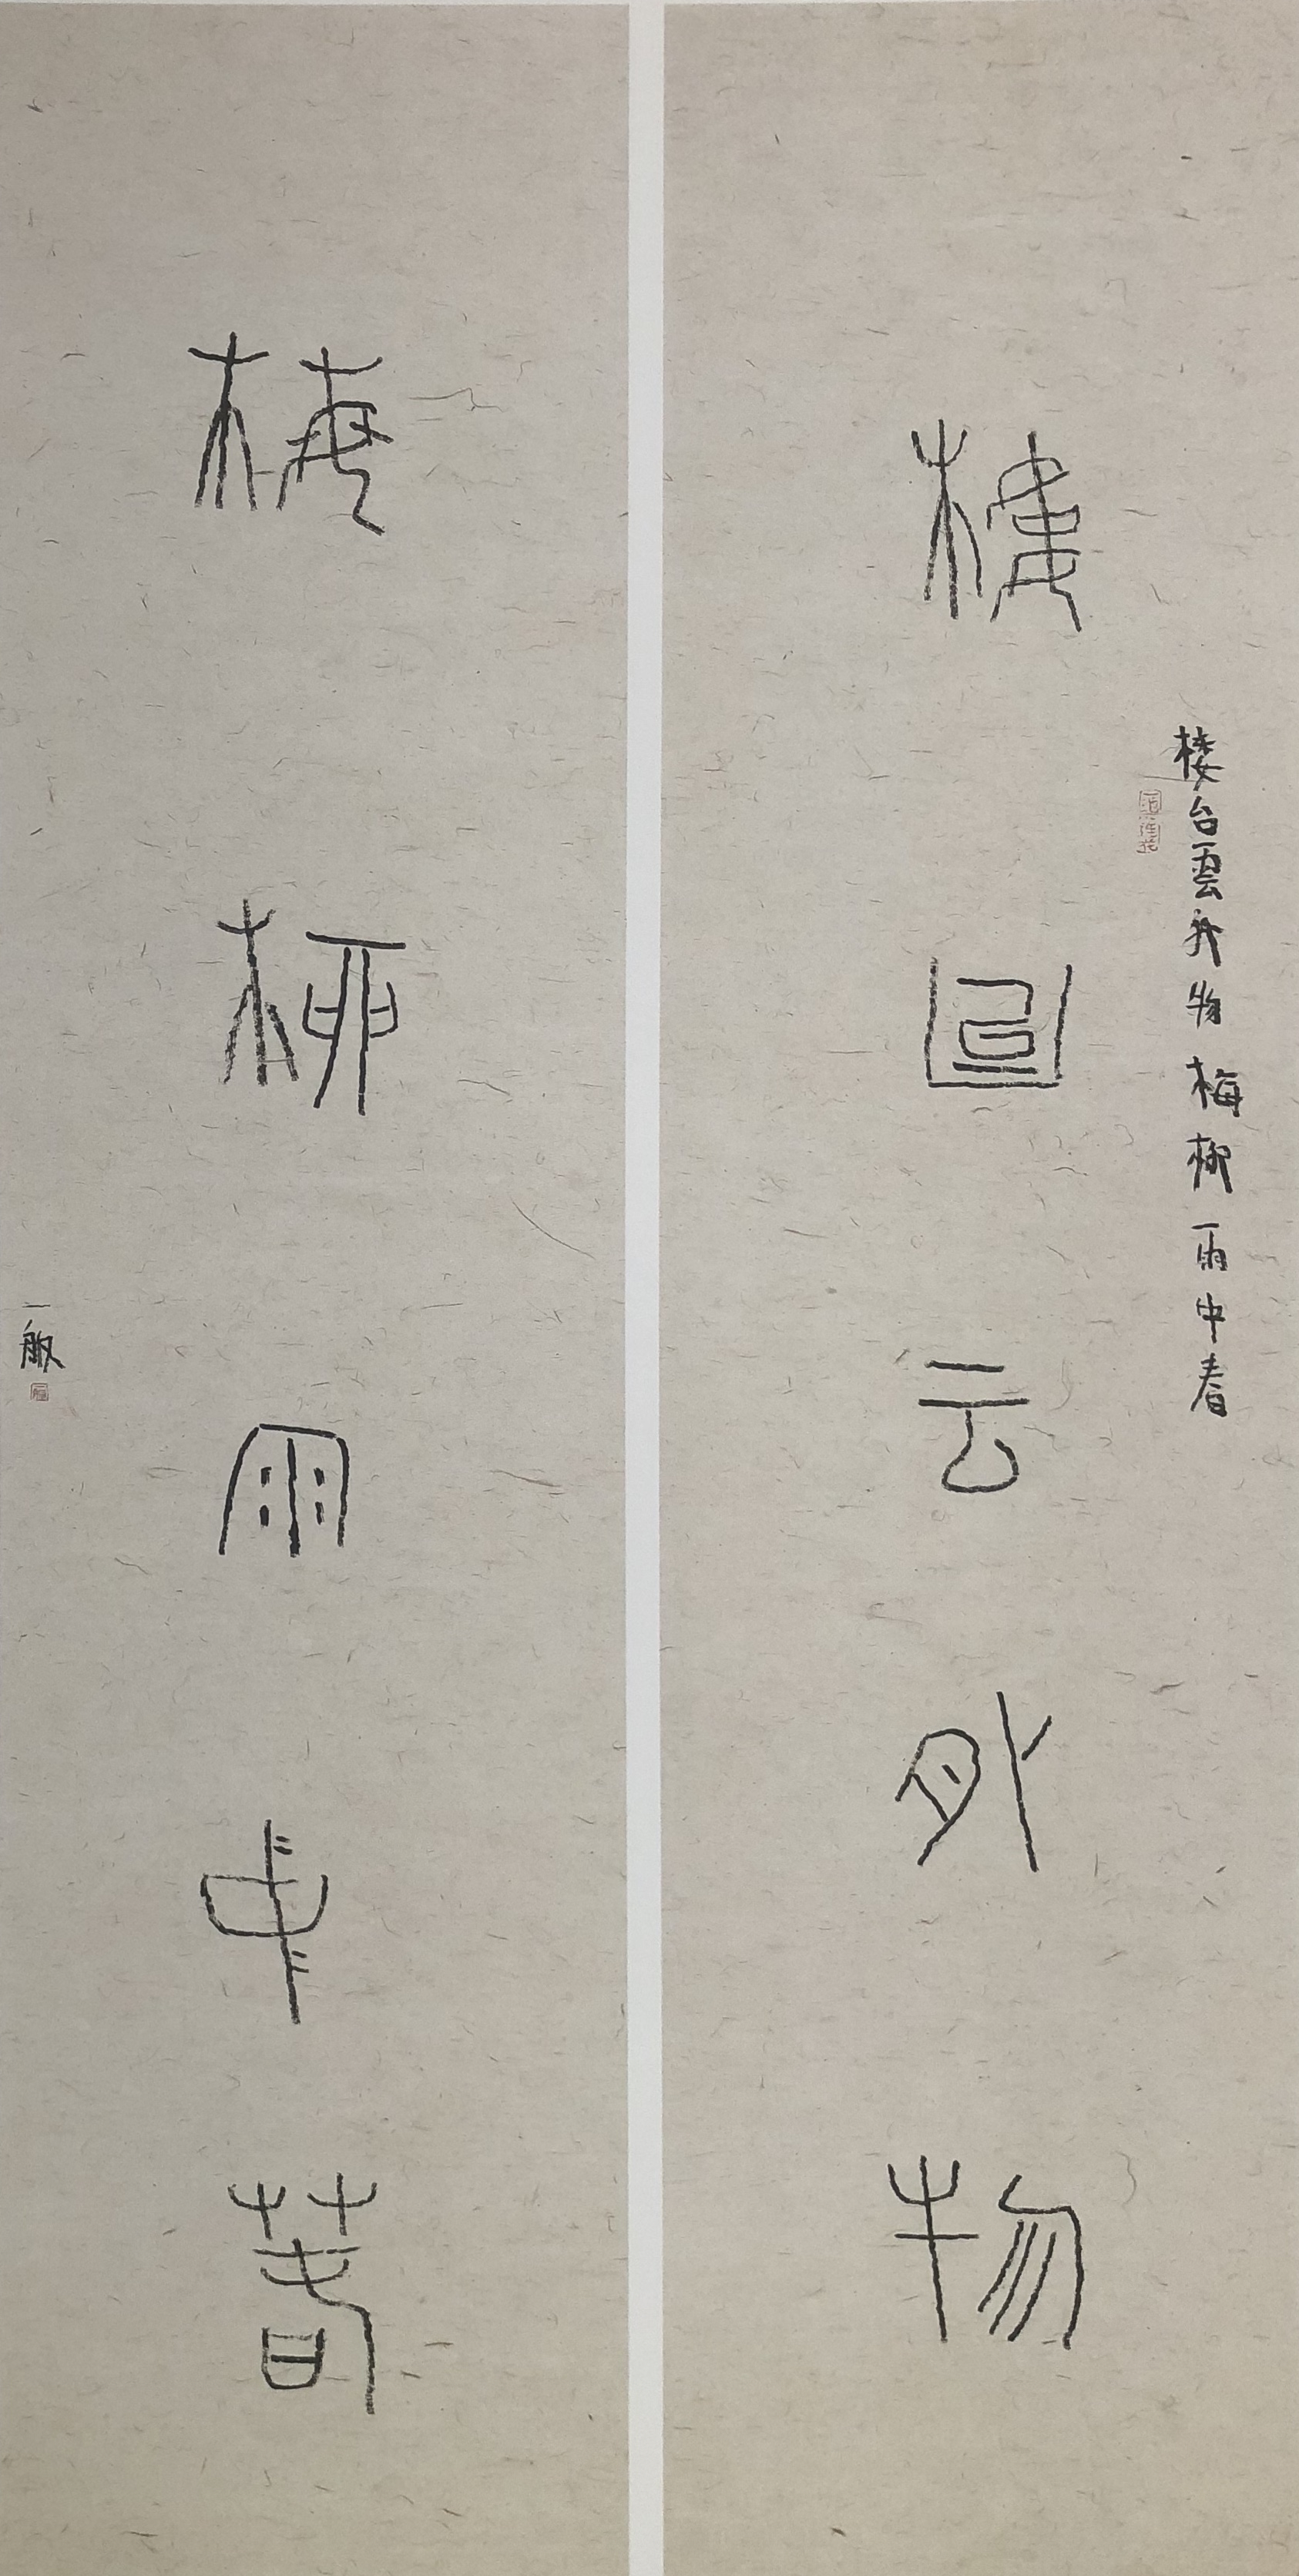 楼台雲外物梅柳雨中春
樓台云外物
梅柳雨中春
一般